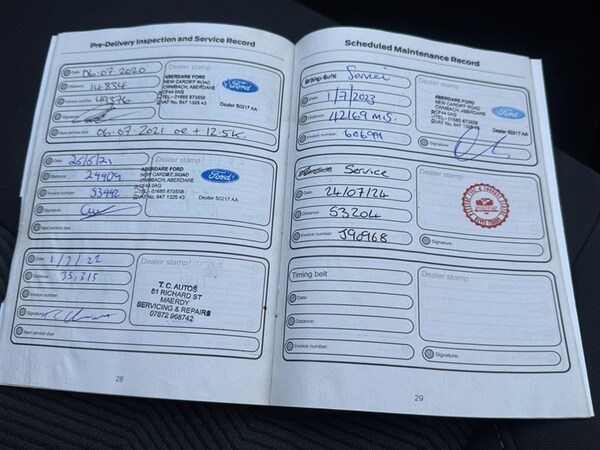 Pre-Delivery Inspection and Service Record
Date: 06.07.2020
Distance: 14834
Invoice number: 49576
Signature:
Next service due: 06.07.2021 or + 12.5K.
Dealer stamp
ABERDARE FORD
NEW CARDIFF ROAD
CWMBACH, ABERDARE
CF44 0AG
TEL:- 01685 873558
VAT No. 647 1325 43
Ford
Dealer 50217 AA
Date: 25/5/21
Distance: 24409
Invoice number: 53442
Signature:
Next service due:
Dealer stamp
ABERDARE FORD
NEW CARDIFF ROAD
CWMBACH, ABERDARE
CF44 0AG
TEL:- 01685 873558
VAT No. 647 1325 43
Ford
Dealer 50217 AA
Date: 1/7/22
Distance: 35,315
Invoice number:
Signature:
Next service due:
Dealer stamp
T.C. AUTOS
51 RICHARD ST
MAERDY
SERVICING & REPAIRS
07872 968742
28
Scheduled Maintenance Record
Service
Date: 1/7/2023
Distance: 42169 MS.
Invoice number:
Dealer stamp
ABERDARE FORD
NEW CARDIFF ROAD
CWMBACH, ABERDARE
CF44 0AG
TEL:- 01685 873558
VAT No. 647 1325 43
Ford
Dealer 50217 AA
Signature:
Service
Date: 24/07/24
Distance: 53204
Invoice number: J90968
Dealer stamp
Signature:
Timing belt
Date:
Distance:
Invoice number:
Dealer stamp
Signature:
29